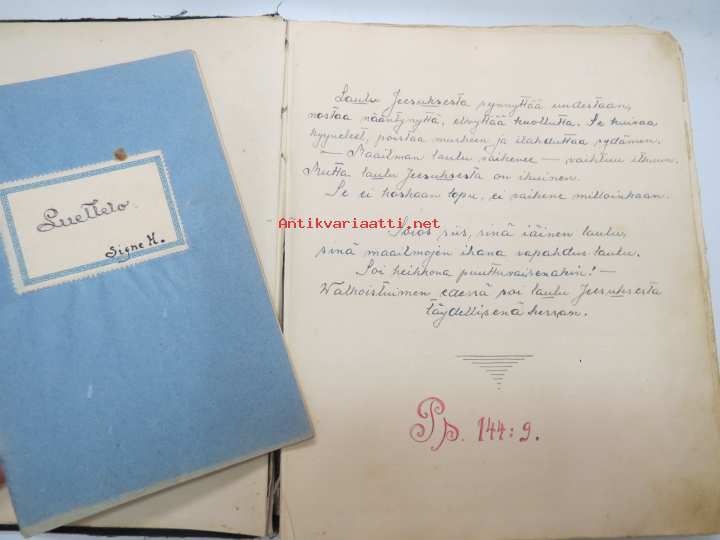 Luettelo.
Signe H.
Laulu Jeesuksesta synnyttää uudestaan,
nostaa nääntynyttä, elvyttää kuollutta. Se kuivaa
kyyneleet, poistaa murheen ja ilahduttaa sydämen.
— Maailman laulu vaikenee — vaihtuu itkuun.
Mutta laulu Jeesuksesta on ikuinen.
Se ei koskaan lopu, ei vaikene milloinkaan.
Antikvariaatti.net
Soios siis, sinä iäinen laulu,
sinä maailmojen ihana vapahdus laulu.
Soi heikkona puuttuvaisenakin! —
Valkoistuimen edessä soi laulu Jeesuksesta
täydellisenä kerran.
Ps. 144:9.